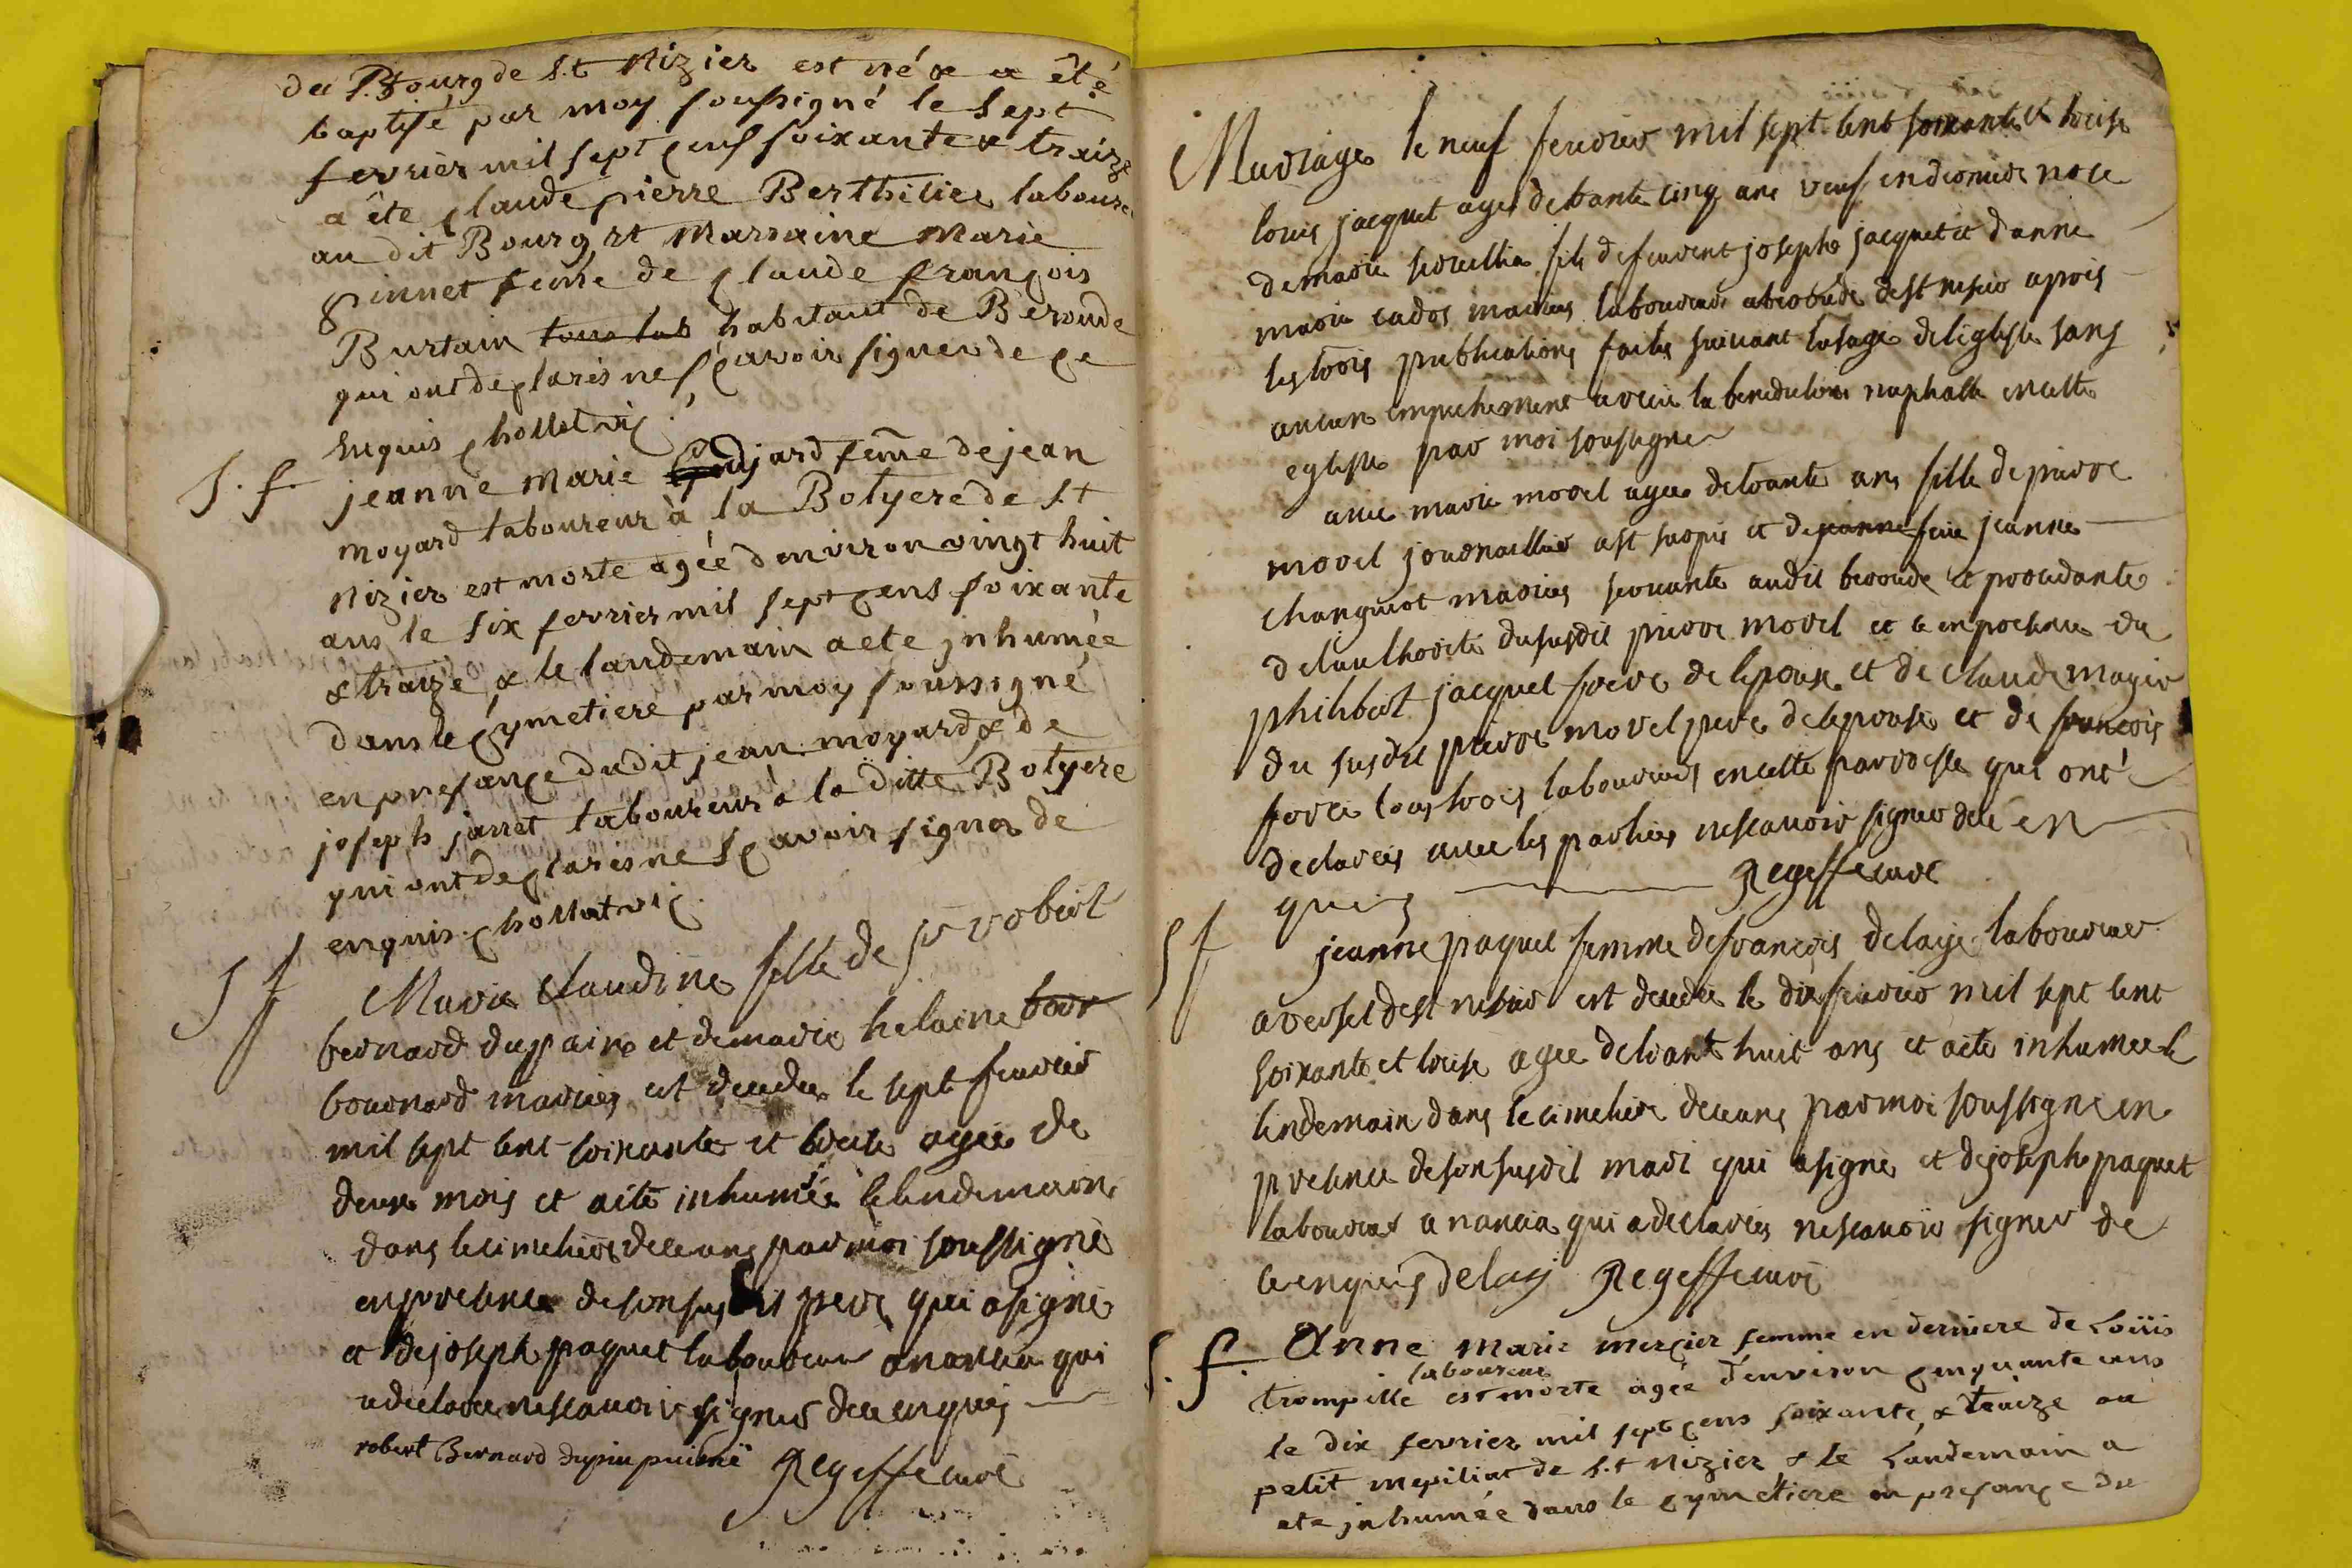 du Bourg de S.t Nizier est né & a été
baptisé par moy soussigné le sept
fevrier mil sept cens soixante & traize
a été claude pierre Berthilier laboure
au dit Bourg et Marraine Marie
pinnet feme de claude françois
Burtain tous lab habitant de Beroude
qui ont declarés ne sçavoir signer de ce
enquis chollet vic
S. f. jeanne Marie jard feme de jean
moyard laboureur à la Botyere de S.t
Nizier est morte agée denviron vingt huit
ans le six fevrier mil sept cens soixante
& traize & le landemain a ete inhumée
dans le cymetiere par moy soussigné
en presance dudit jean moyard & de
joseph jarret laboureur à la ditte Botyere
qui ont declarés ne sçavoir signer de
enquis chollet vic
S f Marie Claudine fille de s.r robert
bernard dupain et demarie helaine bour
bournard mariés est decedee le sept feuvrier
mil sept cent soixante et treize agée de
deux mois et aété inhumée lelendemain
dans lecimetiere deceans par moi soussigné
enpresence desonsusdit pere qui asigné
et dejoseph paquet laboureur anancia qui
adeclaré nescauoir signer dece enquis
robert Bernard dupin puiené Regeffe curé
Mariage le neuf feuvrier mil sept cent soixante & treise
louis jacquet agé detrante cinq ans veuf endernier noce
demarie fils defeu joseph jacquet et danne
marie cados mariés laboureur aberoude dest nisier apres
lestrois publications faites suivant lusage deléglise sans
aucun empechement areceu la benediction nuptialle encette
eglise par moi soussigné
avec marie morel agée detrante ans fille de pierre
morel journallier ast et de jeanne feue jeanne
changuiot mariés servante audit beroude et procedante
delauthorité dususdit pierre morel et enpresence du
philibert jacquet frere de lepoux et de Claude
du susdit pierre morel pere delepouse et de francois
feore tous trois laboureurs encette parroisse qui ont
declarés avec les parties nescauoir signer dece en
quis Regeffe curé
S f jeanne paquet femme defrancois delaye laboureur
averset dest nisier est decedée le dix feuvrier mil sept cent
soixante et treise agee detrante huit ans et aété inhumée le
lendemain dans le cimetiere deceans parmoi soussigné en
presence desonsusdit mari qui asigné et dejoseph paquet
laboureur anancia qui adeclarés nescauoir signer de
ce enquis delay Regeffe curé
S. f. Anne Marie mercier femme en derniere de Loüis
laboureur
trompille est morte agée d'environ cinquante ans
le dix fevrier mil sept cens soixante & traize au
petit mepiliat de S.t Nizier & le Landemain a
ete inhumée dans le cymetiere en presance du